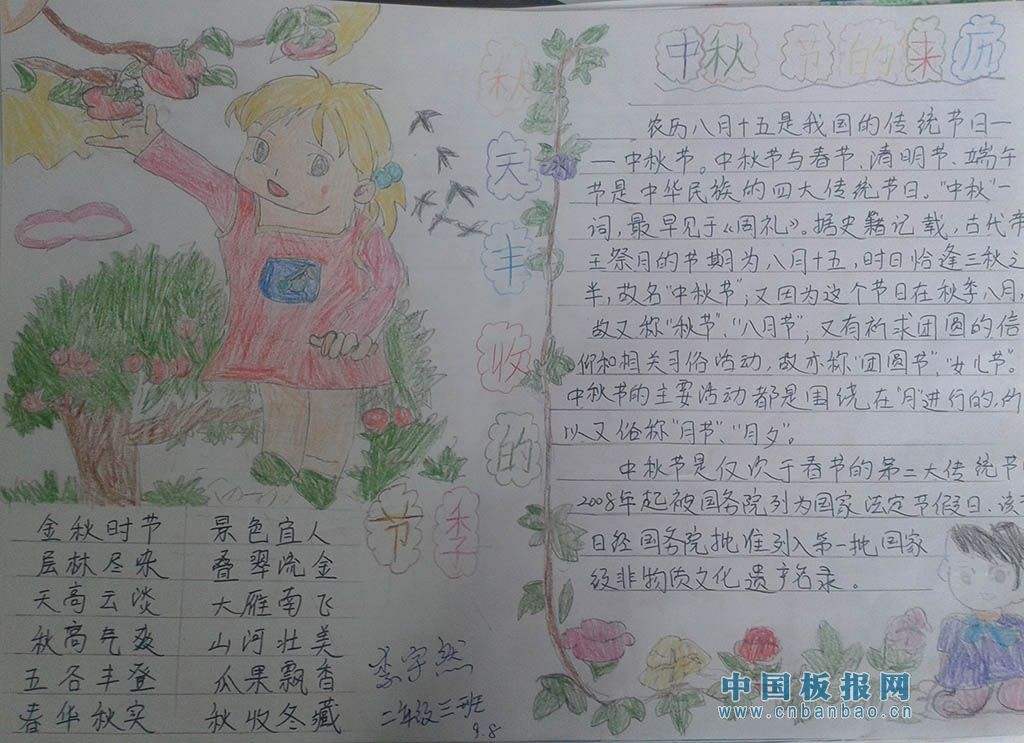 秋天丰收的
节季
金秋时节 景色宜人
层林尽染 叠翠流金
天高云淡 大雁南飞
秋高气爽 山河壮美
五谷丰登 瓜果飘香
春华秋实 秋收冬藏
李宇然
二年级三班
9.8
中秋节的来历
农历八月十五是我国的传统节日—
—中秋节。中秋节与春节、清明节、端午
节是中华民族的四大传统节日。"中秋"一
词,最早见于《周礼》。据史籍记载,古代帝
王祭月的节期为八月十五,时日恰逢三秋之
半,故名"中秋节";又因为这个节日在秋季八月,
故又称"秋节"、"八月节";又有祈求团圆的信
仰和相关习俗活动,故亦称"团圆节"、"女儿节"。
中秋节的主要活动都是围绕在"月"进行的,所
以又俗称"月节"、"月夕"。
中秋节是仅次于春节的第二大传统节
2008年起被国务院列为国家法定节假日、该
日经国务院批准列入第一批国家
级非物质文化遗产名录。
中国板报网
www.cnbanbao.cn